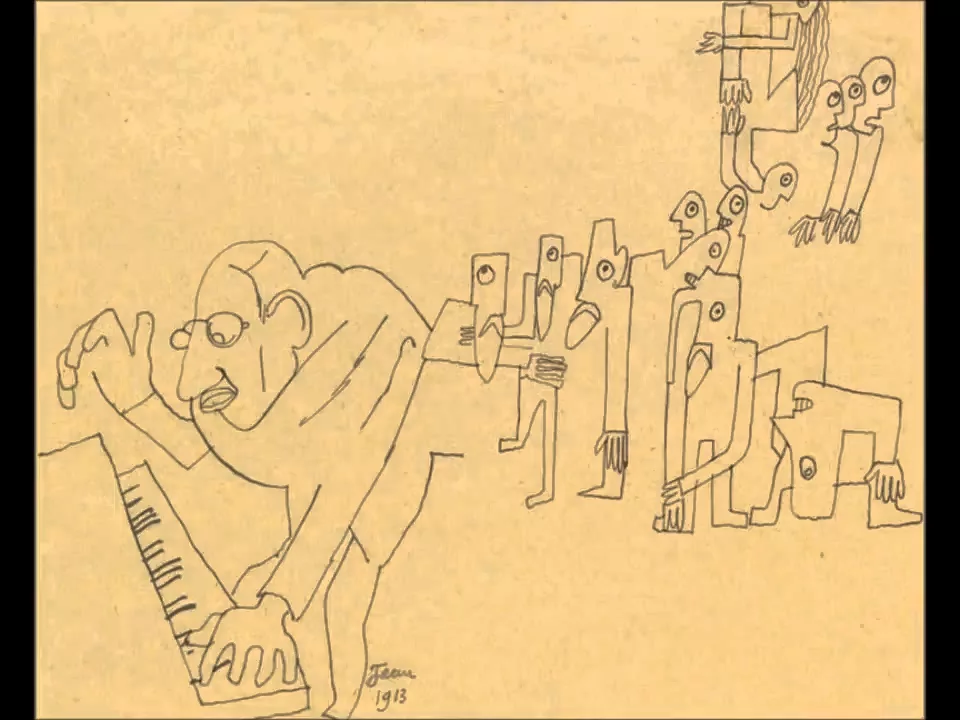 Jean
1913